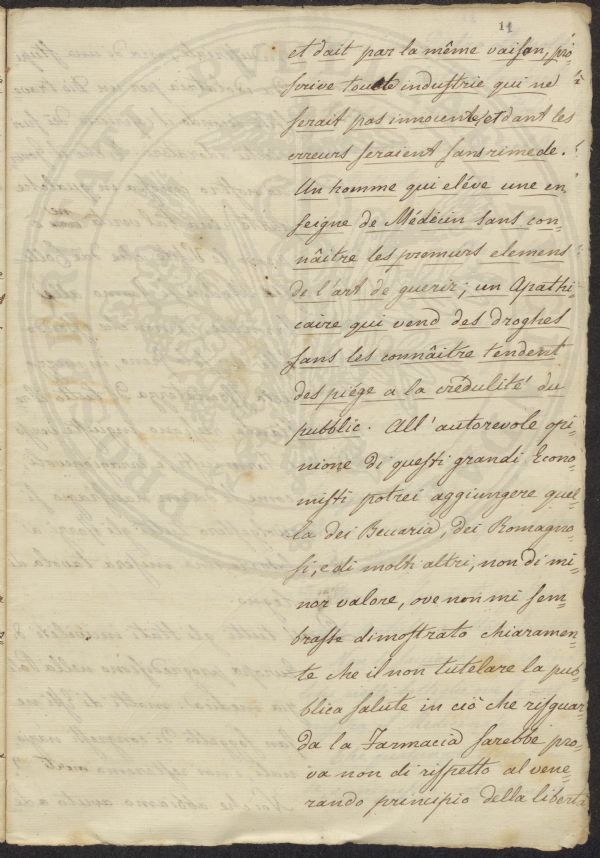 11
et dait par la même vaison, pro=
scrive toute industrie qui ne
serait pas innocente, et dont les
erreurs seraient sans rimede.
Un homme qui eléve une en
seigne de Médécin sans con=
nâitre les premiurs elemens
de l'art de guerir; un Apothi=
caire qui vend des droghes
sans les connâitre tendent
des piége a la crédulité du
pubblic. All'autorevole opi=
nione di questi grandi Econo=
misti potrei aggiungere quel=
la dei Beccaria, dei Romagno=
si, e di molti altri, non di mi=
nor valore, ove non mi sem=
brasse dimostrato chiaramen=
te che il non tutelare la pub=
blica salute in ciò che risguar=
da la Farmacia sarebbe pro=
va non di rispetto al vene=
rando principio della libertà